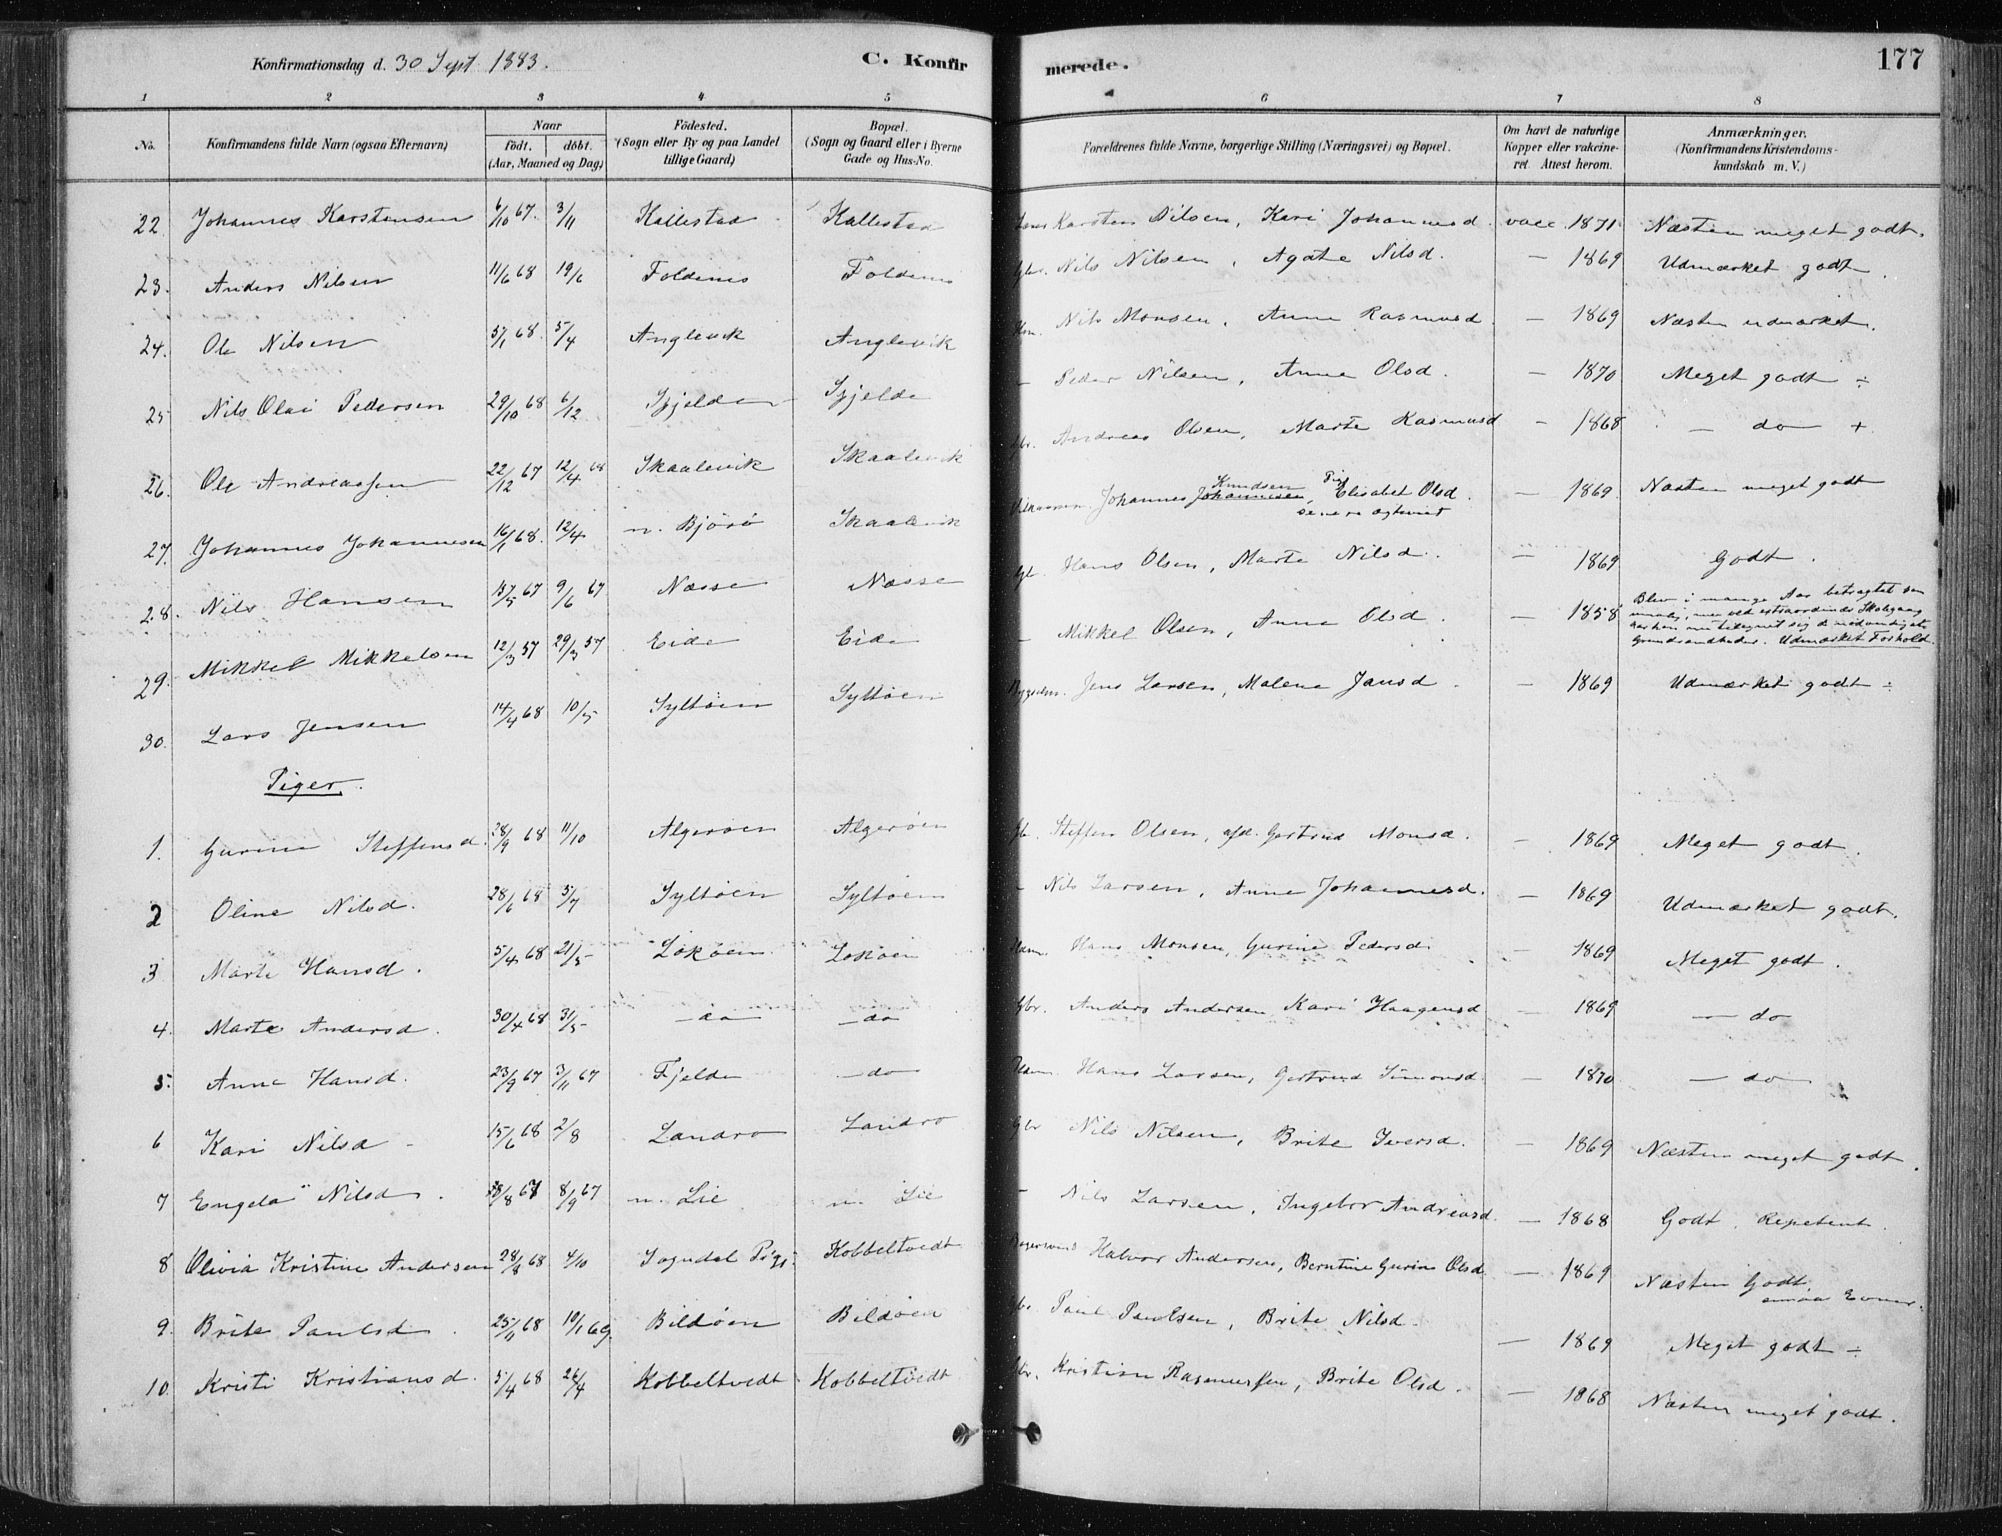 Konfirmationsdag d. 30 Sept 1883. C. Konfirmerede. 177
1 2 3 4 5 6 7 8
No. Konfirmandens fulde Navn (ogsaa Efternavn) Naar født. døbt. (Aar, Maaned og Dag) Fødested. (Sogn eller By og paa Landet tillige Gaard) Bopæl. (Sogn og Gaard eller i Byerne Gade og Hus-No. Forældrenes fulde Navne, borgerlige Stilling (Næringsvei) og Bopæl. Om havt de naturlige Kopper eller vakcineret. Attest herom. Anmærkninger. (Konfirmandens Kristendomskundskab m. V.)
22 Johannes Karstensen 6/10 67. 3/11 Kallestad Kallestad Karsten Nilsen, Kari Johannesd. vacc. 1871. Næsten meget godt.
23. Anders Nilsen 11/6 68 19/6 Foldenes Foldenes Gbr. Nils Nilsen, Agathe Nilsd. — 1869 Udmærket godt.
24. Ole Nilsen 1 68. 5/4 Anglevik Anglevik Nils Monsen, Anne Rasmusd. — 1869 Næsten udmærket.
25 Nils Olai Pedersen 29/10 68 6/12 Spjelde Spjelde — Peder Nilsen, Anne Olsd. — 1870 Meget godt ÷
26. Ole Andreassen 22/12 67 12/4 68 Skaalevik Skaalevik Gbr. Andreas Olsen, Marte Rasmusd — 1868 — do +
27. Johannes Johannesen 16/1 68. 12/4 n. Bjørø Skaalevik Johannes Johannesen Knudsen, Pig Elisabet Olsd. senere ægteviet — 1869 Næsten meget godt
28. Nils Hansen 5 67 9/6 67 Næsse Næsse Gbr. Hans Olsen, Marte Nilsd. — 1869 Godt.
29. Mikkel Mikkelsen 12/3 57 29/3 57 Eide Eide — Mikkel Olsen, Anne Olsd. — 1858 Blev i mange Aar betragtet som umulig, men ved extraordinær Skolegang har han nu tilegnet sig de nødvendigste Grundsandheder. Udmærket Forhold.
30. Lars Jensen 14/4 68 10/5 Syltøen Syltøen Jens Larsen, Malene Jansd. — 1869 Udmærket godt ÷
Piger.
1. Gurine Steffensd. 28/9 68 11/10 Algerøen Algerøen Gbr. Steffen Olsen, afd. Gertrud Monsd. — 1869 Meget godt.
2 Oline Nilsd. 28/6 68 5/7 Syltøen Syltøen — Nils Larsen, Anne Johannesd. — 1869 Udmærket godt.
3 Marte Hansd. 5/4 68 21/5 Lokøen Lokøen Hans Monsen, Gurine Pedersd. — 1869 Meget godt.
4. Marte Andersd. 30/4 68 31/5 — do — do Gbr. Anders Andersen Kari Haagensd — 1869 — do
5. Anne Hansd. 23/9 67 3/11 67 Fjelde — do Hans Larsen, Gertrud Simonsd. — 1870 — do
6 Kari Nilsd — 15/6 68 2/8 Landro Landro Gbr Nils Nilsen, Brite Iversd. — 1869 Næsten meget godt.
7 Engela Nilsd. 8 67 8/9 67 n. Lie n. Lie — Nils Larsen, Ingebor Andreasd. — 1868 Godt. Repetent.
8 Olivia Kristine Andersen 28/8 68 4/10 Sogndal Kobbeltvedt Halvor Andersen, Berntine Gurine Olsd — 1869 Næsten Godt smaa Evner.
9. Brite Paulsd. 25/11 68 10/1 69. Bildøen Bildøen Gbr Paul Paulsen, Brite Nilsd. — 1869 Meget godt ÷
10. Kristi Kristiansd. 5/4 68 26/4 Kobbeltvedt Kobbeltvedt Gbr. Kristian Rasmussen, Brite Olsd. — 1868 Næsten meget godt.